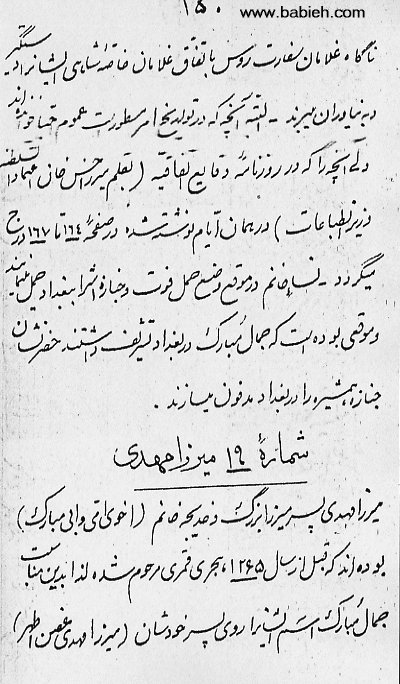 ۱۵۰
www.babieh.com
ناگاه غلامان سفارت روس باتفاق غلامان خاصهٔ شاهی ایشانرا دستگیر
و به نیاوران میبرند - البته آنچه که در تواریخ امر مسطور است عموم احبا خوانده‌اند
ولی آنچه را که در روزنامهٔ وقایع اتفاقیه (بقلم میرزا حسن خان اعتماد السلطنه
وزیر انطباعات) در همان ایام نوشته شده در صفحهٔ ۱۶۴ تا ۱۶۷ درج
میگردد - نساء خانم در موقع وضع حمل فوت و جنازهٔ اشرا ببغداد حمل مینمایند
و موقعی بوده است که جمال مبارک در بغداد تشریف داشتند حضرتشان
جنازه همشیره را در بغداد مدفون میسازند .
شمارهٔ ۱۹ میرزا مهدی
میرزا مهدی پسر میرزا بزرگ و خدیجه خانم (اخوی امی و ابی مبارک)
بوده اند که قبل از سال ۱۲۶۵ هجری قمری مرحوم شده لذا بدین مناسبت
جمال مبارک اسم ایشانرا روی پسر خودشان (میرزا مهدی غصن اطهر)